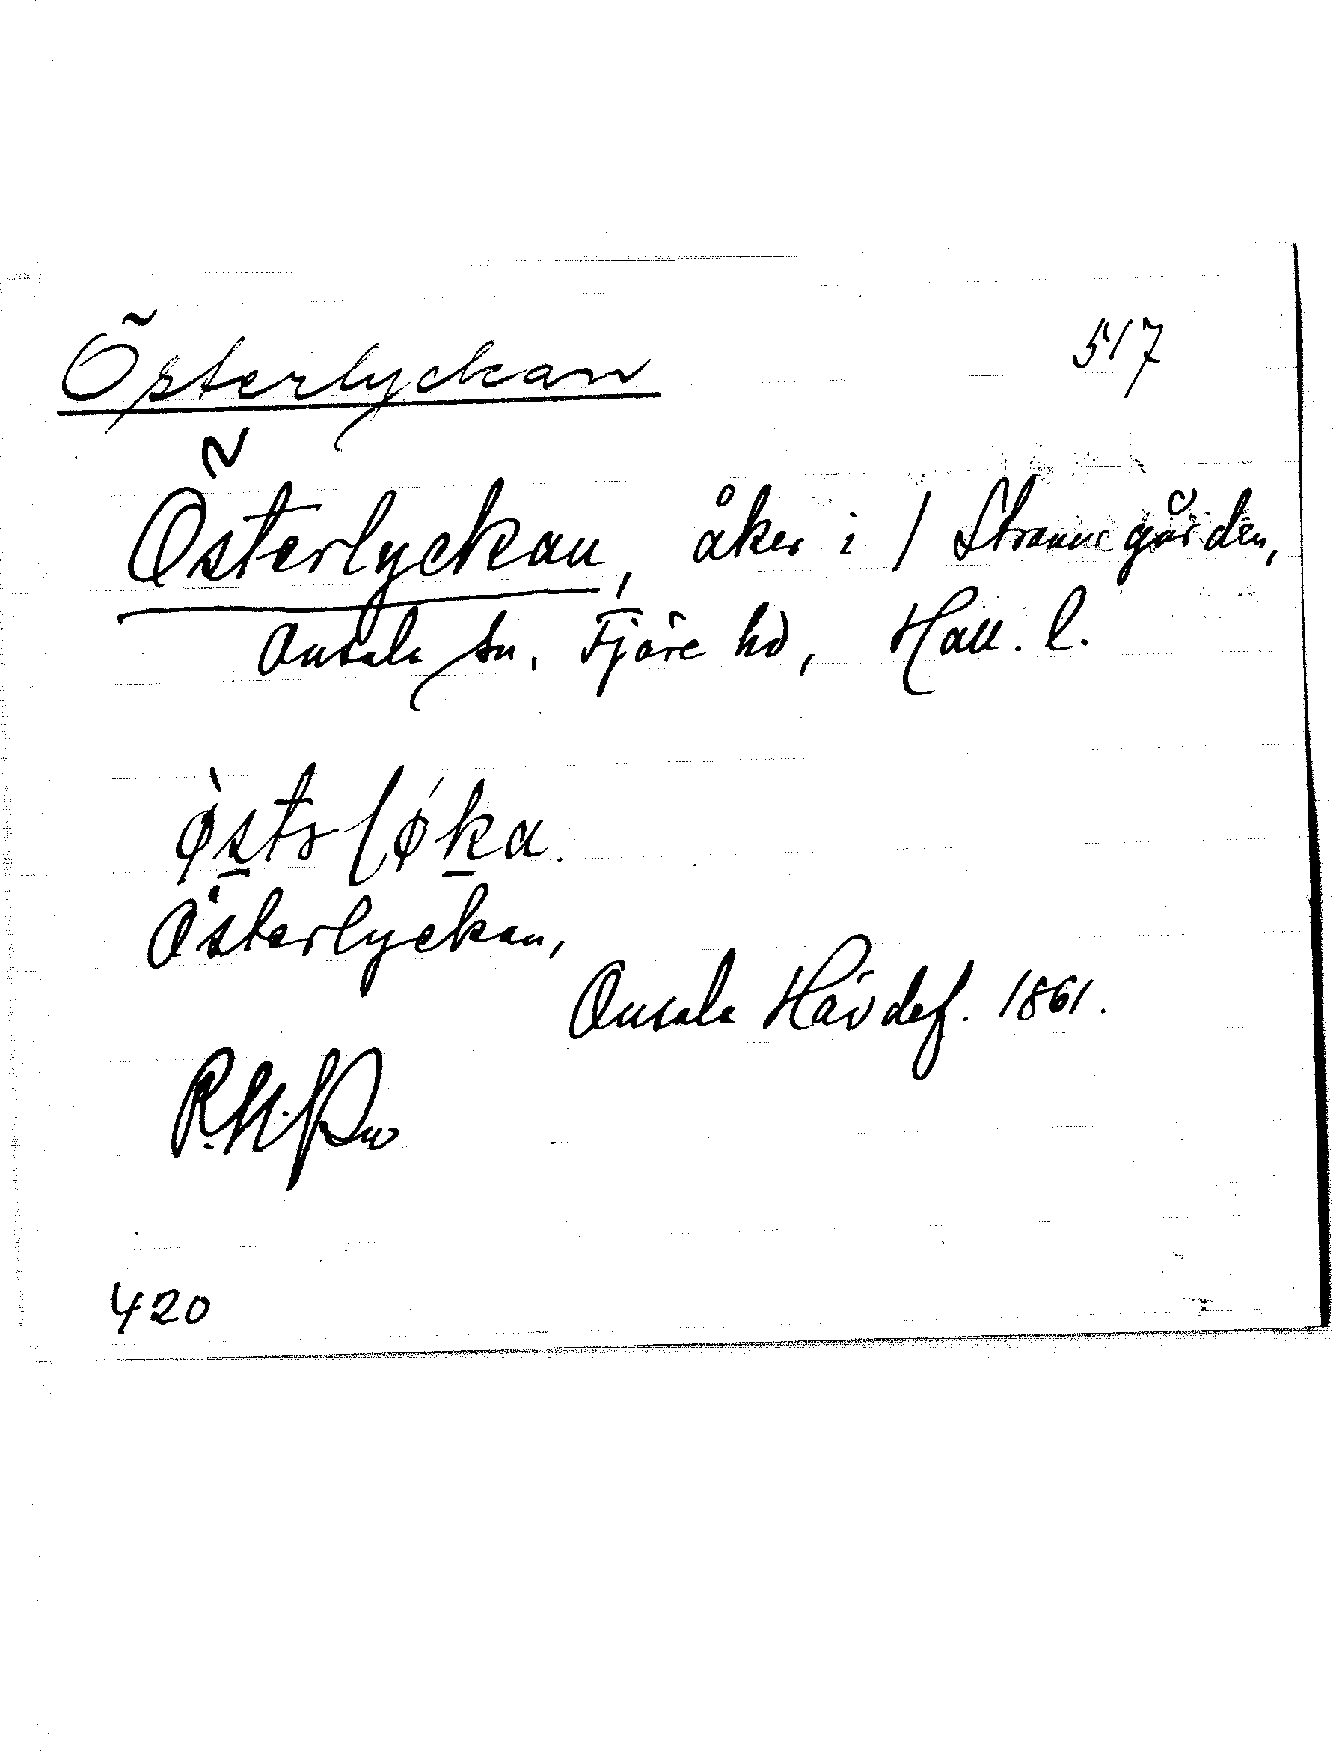 Österlyckan 517
Österlyckan, åker i 1 Strannegården,
Onsala sn, Fjäre hd, Hall. l.
Österlyckan,
Onsala Hävdef. 1861.
420